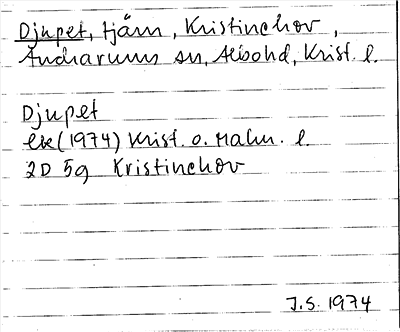 Djupet, tjärn, Kristinehov,
Andrarums sn, Albohd, Krist. l.
Djupet
Ek (1974) Krist. o. Malm. l.
2D 5g Kristinehov
J.S. 1974